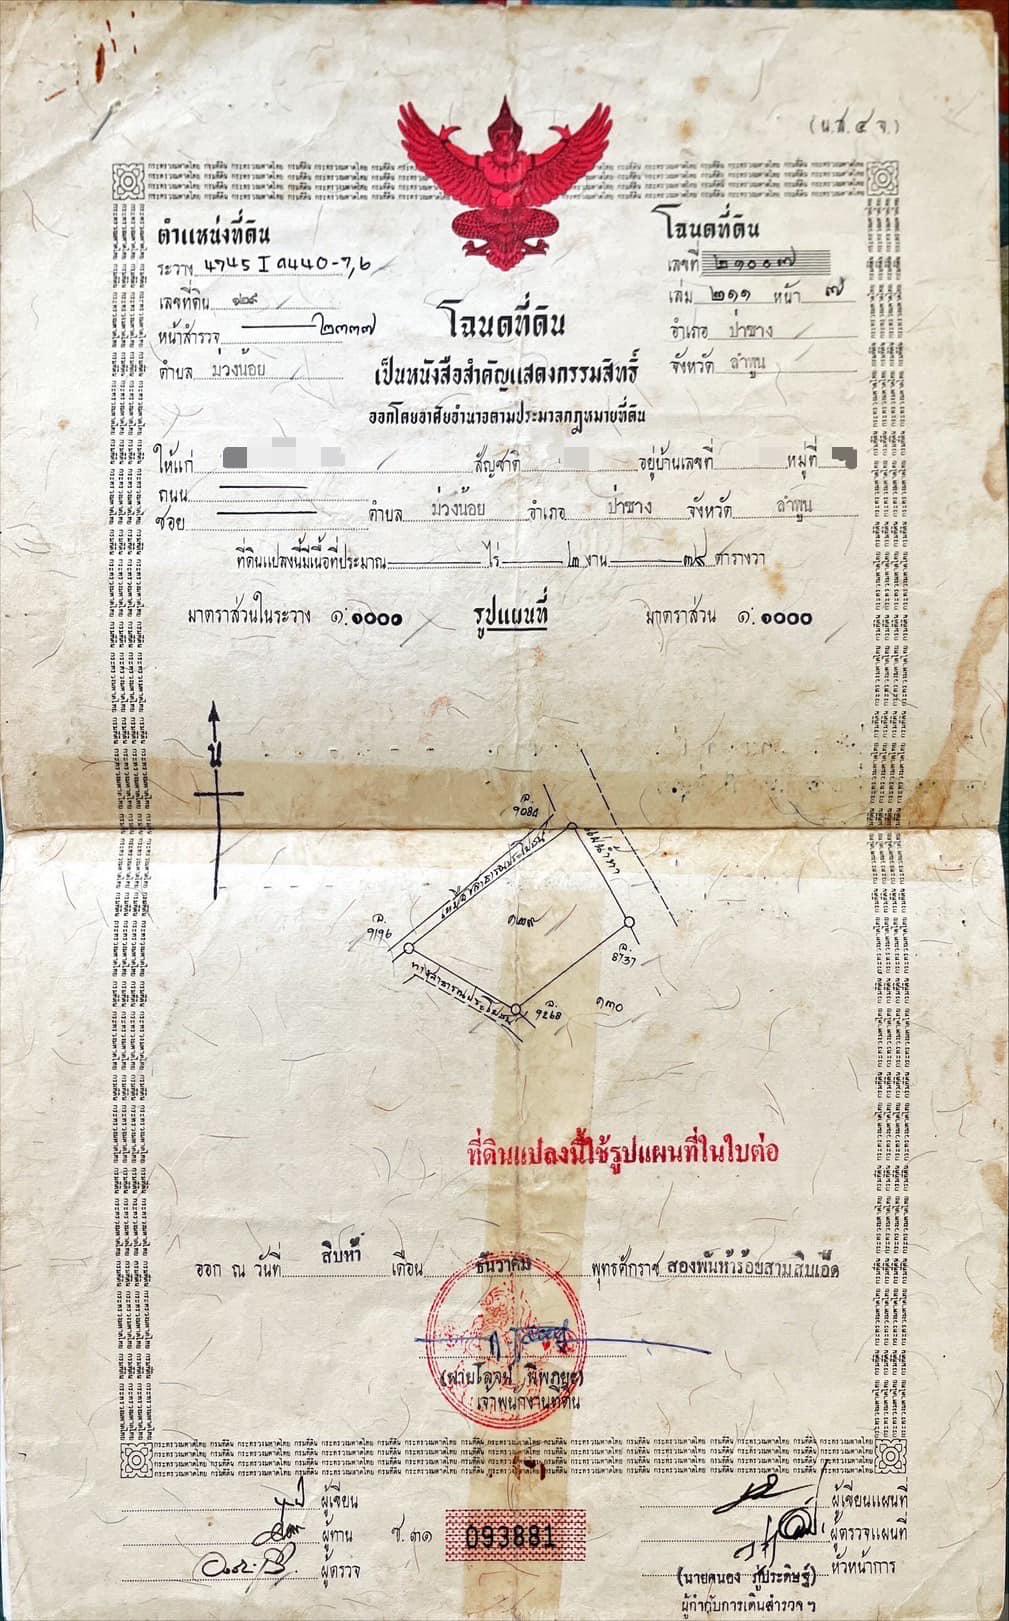 (น.ส.๔ จ.)
ตำแหน่งที่ดิน
ระวาง 4745 I ๗440-7,6
เลขที่ดิน ๑๒๙
หน้าสำรวจ ๒๓๓๗
ตำบล ม่วงน้อย
โฉนดที่ดิน
เลขที่ ๒๑๐๐๗
เล่ม ๒๑๑ หน้า ๗
อำเภอ ป่าซาง
จังหวัด ลำพูน
โฉนดที่ดิน
เป็นหนังสือสำคัญแสดงกรรมสิทธิ์
ออกโดยอาศัยอำนาจตามประมวลกฎหมายที่ดิน
ให้แก่ สัญชาติ อยู่บ้านเลขที่ หมู่ที่
ถนน
ซอย ตำบล ม่วงน้อย อำเภอ ป่าซาง จังหวัด ลำพูน
ที่ดินแปลงนี้มีเนื้อที่ประมาณ ไร่ ๒ งาน ๓๙ ตารางวา
มาตราส่วนในระวาง ๑:๑๐๐๐ รูปแผนที่ มาตราส่วน ๑:๑๐๐๐
น
ล. 9084
เหมืองสาธารณประโยชน์
แม่น้ำทา
๑๒๙
ล. 9196
ล. 8737
ทางสาธารณประโยชน์
ล. 9268
๑๓๐
ที่ดินแปลงนี้ใช้รูปแผนที่ในใบต่อ
ออก ณ วันที่ สิบห้า เดือน ธันวาคม พุทธศักราช สองพันห้าร้อยสามสิบเอ็ด
เจ้าพนักงานที่ดิน
ผู้เขียน
ผู้ทาน
ผู้ตรวจ
ช.๓๑ 093881
ผู้เขียนแผนที่
ผู้ตรวจแผนที่
หัวหน้าการ
(นายคนอง ภู่ประดิษฐ์)
ผู้กำกับการเดินสำรวจฯ